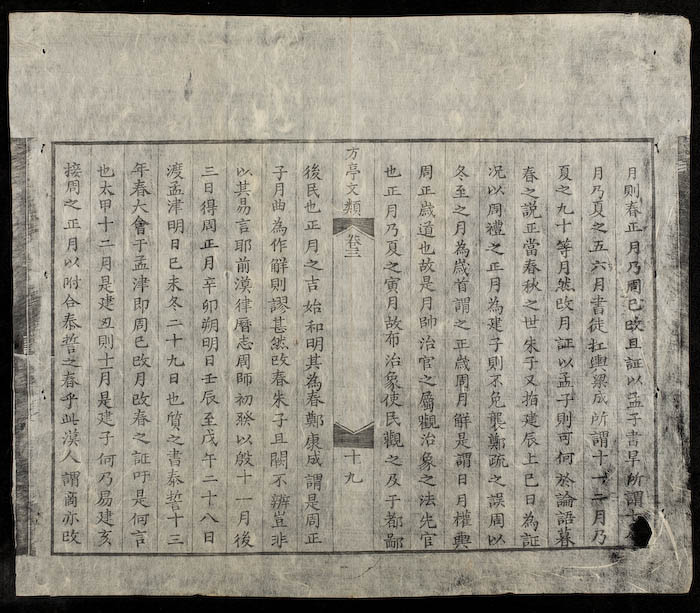 月則春正月乃周已改且証以孟子書早所謂七八
月乃夏之五六月書徒杠輿梁成所謂十一十二月乃
夏之九十等月然改月証以孟子則可何於論語暮
春之説正當春秋之世朱子又指建辰上巳日為証
况以周禮之正月為建子則不免襲鄭疏之誤周以
冬至之月為歳首謂之正歳周月解是謂日月權輿
周正歳道也故是月帥治官之屬觀治象之法先官
也正月乃夏之寅月故布治象使民觀之及于都鄙
方亭文類
卷三
十九
後民也正月之吉始和明其為春鄭康成謂是周正
子月曲為作解則謬甚然改春朱子且闕不辨豈非
以其易言耶前漢律曆志周師初發以殷十一月後
三日得周正月辛卯朔明日壬辰至戊午二十八日
渡孟津明日已未冬二十九日也質之書泰誓十三
年春大會于孟津即周已改月改春之証吁是何言
也太甲十二月是建丑則十一月是建子何乃易建亥
接周之正月以附合泰誓之春乎此漢人謂商亦改